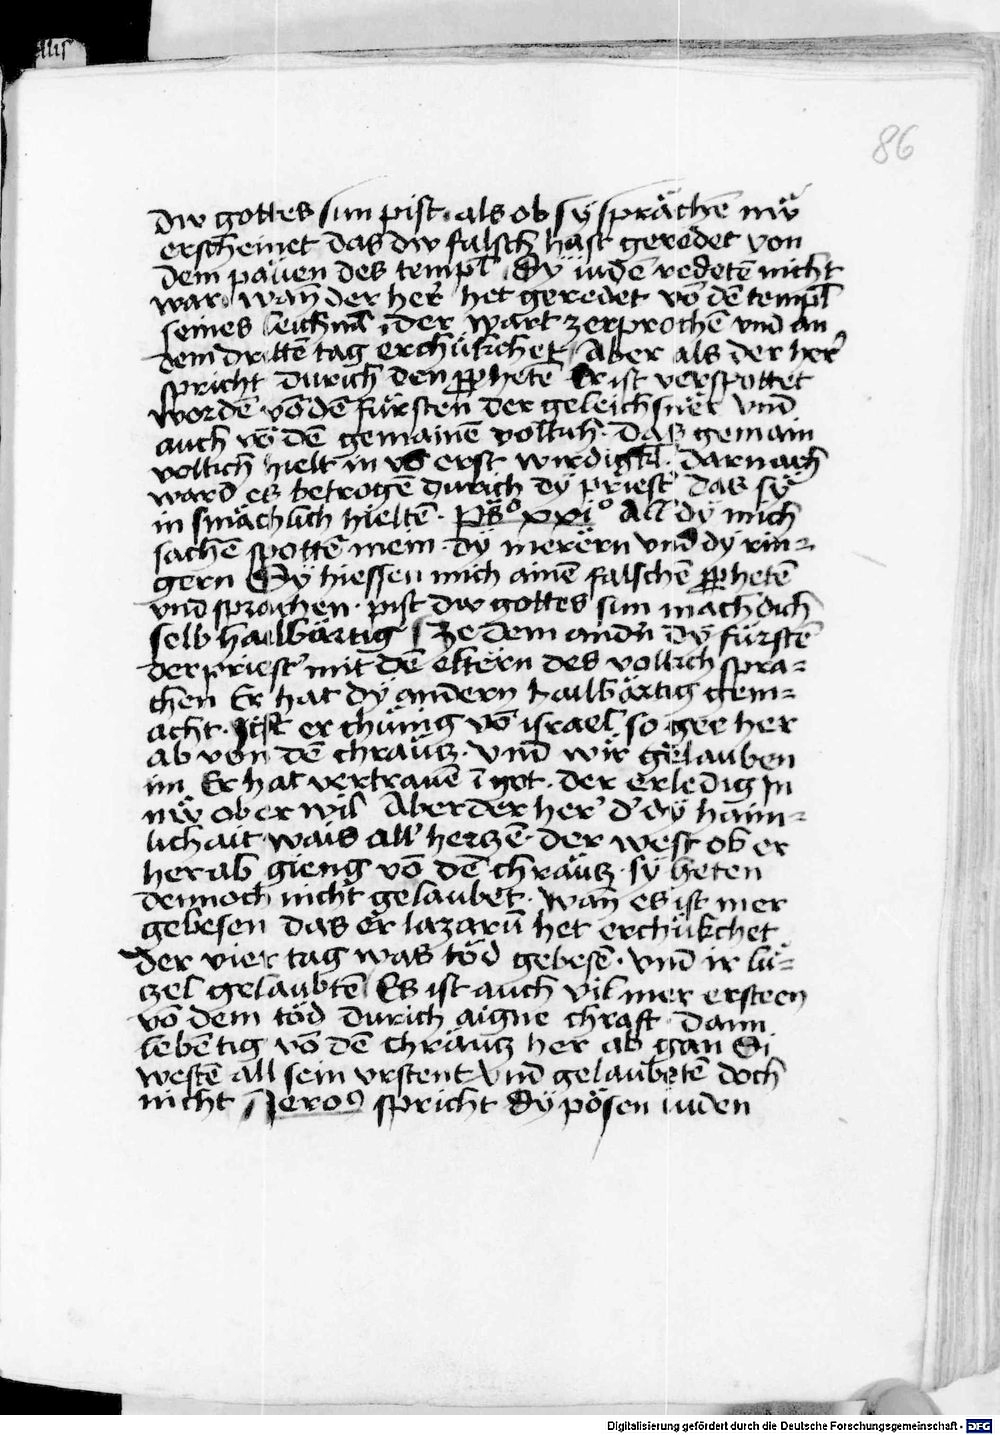 86
dw gottes sun pist, als ob sÿ sprächen nw̄
erscheinet das dw falsch hast geredet von
dem päuen des templ̄ Dÿ iudē redetē nicht
war, wan̄ der her̄ het geredet vō dē templ̄
seines leichnā, der wart zerprochē vnd an
dem drittē tag erchükchet, Aber als der her̄
spricht durich den ꝓphetē Er ist verspottet
wordē vō dē fürsten der geleichsnër vnd̄
auch vō dē gemainē volkch. Daz gemain
volkch hielt in vō erst wirdigkl̄. darnach
ward ez betrogē durich dÿ priest' das sÿ
in smächlich hieltē. ps̄° xxi° All dÿ mich
sachē spottē mein. dÿ merërn vnd dÿ rin=
gern Dÿ hiessen mich ainē falschē ꝓphetē
vnd sprachen. pist dw gottes sun mach dich
selb hailbärtig Ze dem and'n Dÿ fürstē
der priest' mit dē eltërn des volkch spra=
chen Er hat dÿ andern hailbärtig gem=
acht. Ist er chünig vō israel so gee her
ab von dē chräutz. vnd̄ wir gelauben
im Er hat vertrauē ī got. der erledig in
nw̄ ob er wil Aber der her' d' dÿ haim=
lichait wais all' hertzē. der west ob er
her ab gieng vō dē chräutz. sÿ heten
dennoch nicht gelaubet. wan̄ es ist mer
gebesen das er lazarū het erchükchet
der vier tag was töd gebesē. vnd̄ ir lü=
czel gelaubtē Es ist auch vil mer ersteen
vō dem töd durich aigne chraft dann
lebēntig vō dē chräutz her ab gan Si
westē all sein vrstent vnd̄ gelaubetē doch
nicht Jero⁹ spricht Dÿ pösen iuden
Digitalisierung gefördert durch die Deutsche Forschungsgemeinschaft - DFG